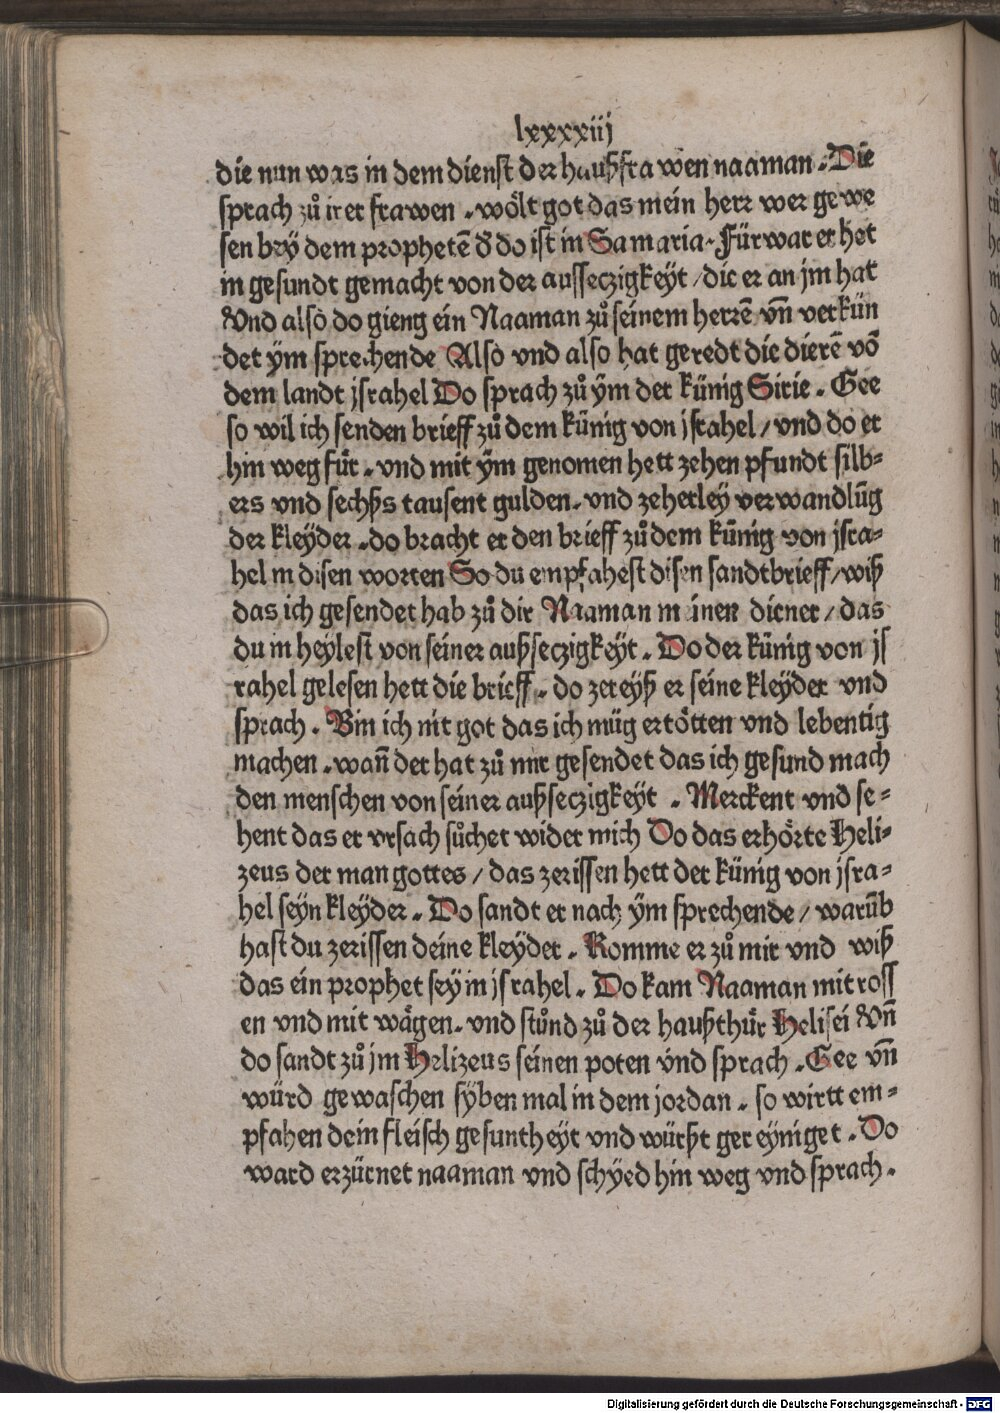 lxxxxiij
die nun was in dem dienst der haußfrawen naaman . Die
sprach zů irer frawen . wölt got das mein herr wer gewe
sen bey dem prophetē d̄ do ist in Samaria . Fürwar er het
in gesundt gemacht von der ausseczigkeÿt / die er an jm hat
Vnd also do gieng ein Naaman zů seinem herrē vn̄ verkün
det ÿm sprechende Also vnd also hat geredt die dierē vō
dem landt jsrahel Do sprach zů ÿm der künig Sirie . Gee
so wil ich senden brieff zů dem künig von jsrahel / vnd do er
hin weg fůr . vnd mit ÿm genomen hett zehen pfundt silb⸗
ers vnd sechßs tausent gulden . vnd zeherley verwandlūg
der kleÿder . do bracht er den brieff zů dem künig von jsra⸗
hel in disen worten So du empfahest disen sandtbrieff / wiß
das ich gesendet hab zů dir Naaman meinen diener / das
du in heylest von seiner außseczigkeÿt . Do der künig von js
rahel gelesen hett die brieff . do zereÿß er seine kleÿder vnd
sprach . Bin ich nit got das ich müg ertötten vnd lebentig
machen . wan̄ der hat zů mir gesendet das ich gesund mach
den menschen von seiner außseczigkeÿt . Merckent vnd se⸗
hent das er vrsach sůchet wider mich Do das erhörte Heli⸗
zeus der man gottes / das zerissen hett der künig von jsra⸗
hel seÿn kleÿder . Do sandt er nach ÿm sprechende / warūb
hast du zerissen deine kleÿder . Komme er zů mir vnd wiß
das ein prophet sey in jsrahel . Do kam Naaman mit ross
en vnd mit wägen . vnd stůnd zů der haußthür Helisei Vn̄
do sandt zů jm Helizeus seinen poten vnd sprach . Gee vn̄
würd gewaschen sÿben mal in dem jordan . so wirtt em⸗
pfahen dein fleisch gesuntheÿt vnd würßt gereÿniget . Do
ward erzürnet naaman vnd schÿed hin weg vnd sprach .
Digitalisierung gefördert durch die Deutsche Forschungsgemeinschaft - DFG